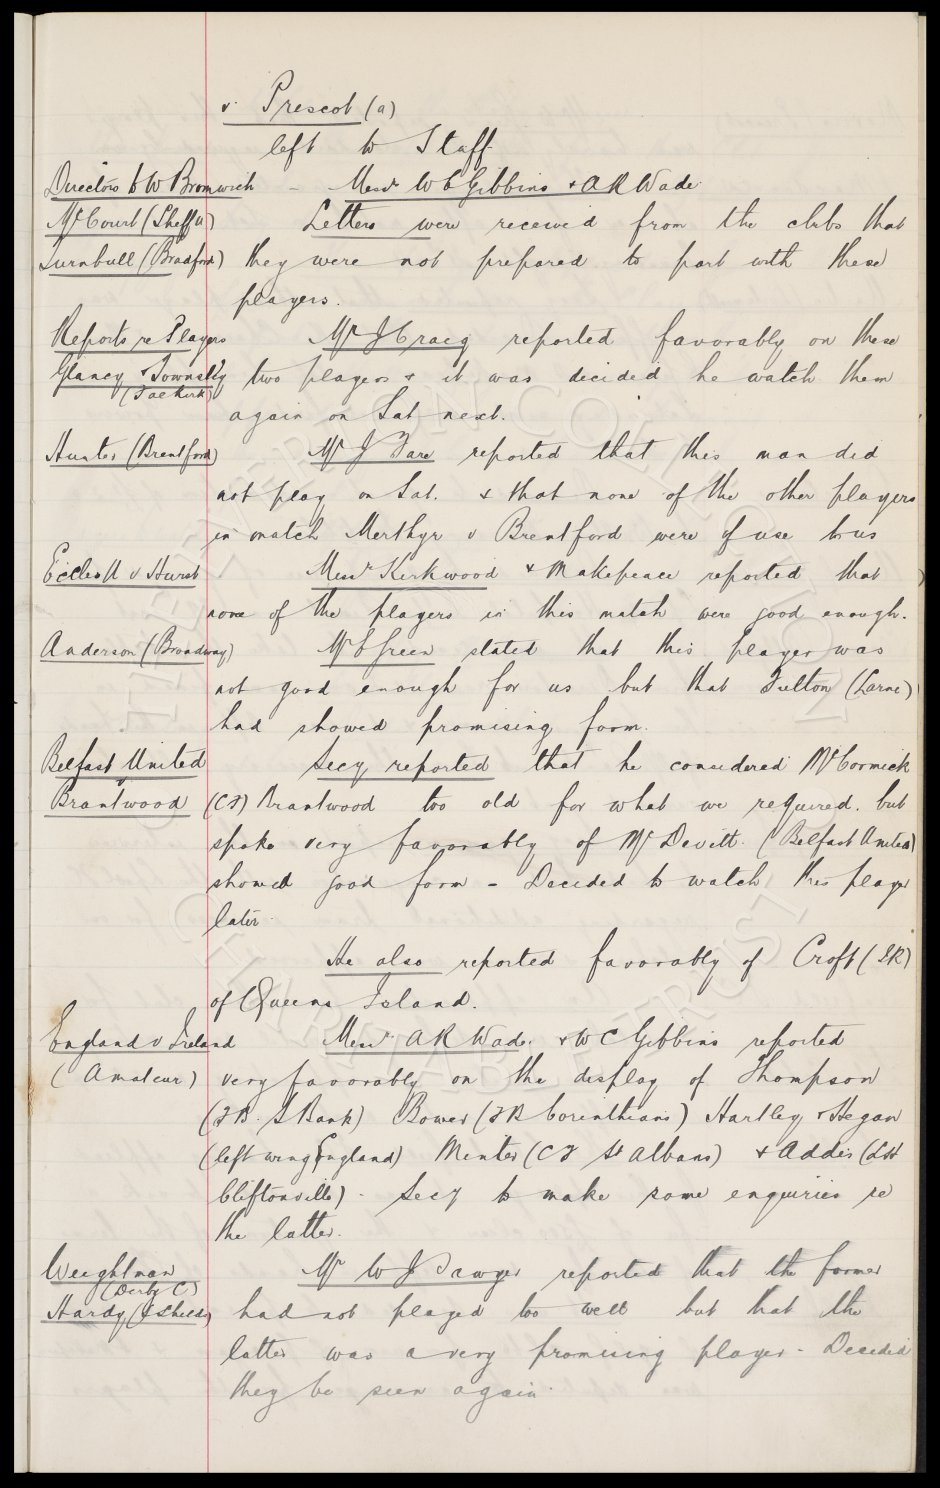 v. Prescot (a)
left to Staff.
Directors to W Bromwich - Messrs W C Gibbins & A R Wade.
McCourt (Sheff U) Letters were received from the clubs that
Turnbull (Bradford) they were not prepared to part with these
players.
Reports re Players Mr J Craig reported favorably on these
Glancy & Townsley two players & it was decided he watch them
(Falkirk)
again on Sat next.
Hunter (Brentford) Mr J Fare reported that this man did
not play on Sat. & that none of the other players
in match Merthyr v Brentford were of use to us
Eccles U v Hurst Messrs Kirkwood & Makepeace reported that
none of the players in this match were good enough.
Anderson (Broadway) Mr C Green stated that this player was
not good enough for us but that Fulton (Larne)
had showed promising form.
Belfast United Secy reported that he considered McCormick
v
Brantwood (CF) Brantwood too old for what we required. but
spoke very favorably of McDevitt. (Belfast United)
showed good form - Decided to watch this player
later.
He also reported favorably of Croft (IR)
of Queens Island.
England v Ireland Messrs A R Wade. & W C Gibbins reported
(Amateur) very favorably on the display of Thompson
(FB. S Bank) Bower (FB Corinthians) Hartley & Hegan
(left wing England) Minter (CF St Albans) & Addis (LH
Cliftonville) - Secy to make some enquiries re
the latter.
Weightman Mr W J Sawyer reported that the former
(Derby C)
Hardy (S Shields) had not played too well but that the
latter was a very promising player - Decided
they be seen again.
THE EVERTON COLLECTION
CHARITABLE TRUST